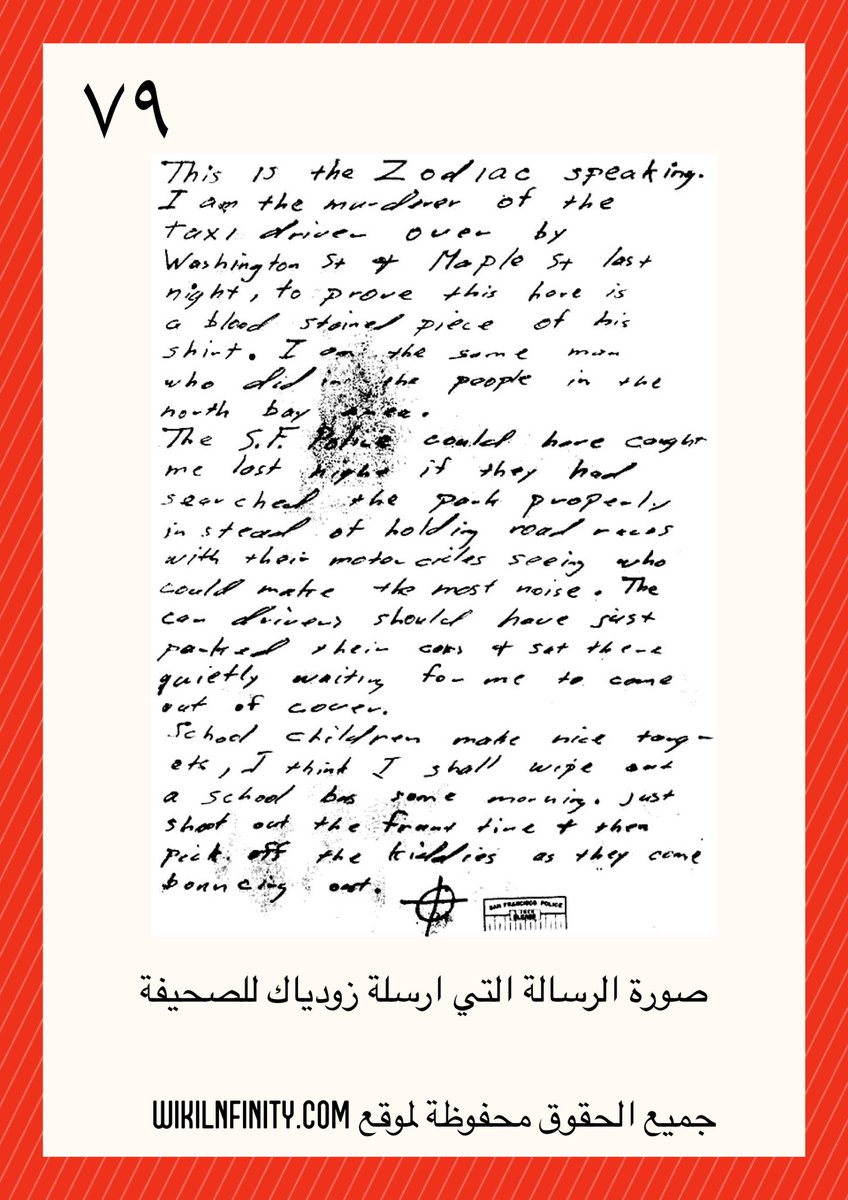 ٧٩
This is the Zodiac speaking.
I am the murderer of the
taxi driver over by
Washington St + Maple St last
night, to prove this here is
a blood stained piece of his
shirt. I am the same man
who did in the people in the
north bay area.
The S.F. Police could have caught
me last night if they had
searched the park properly
instead of holding road races
with their motorcicles seeing who
could make the most noise. The
car drivers should have just
parked their cars + sat there
quietly waiting for me to come
out of cover.
School children make nice targ-
ets, I think I shall wipe out
a school bus some morning. Just
shoot out the front tire + then
pick off the kiddies as they come
bouncing out.
SAN FRANCISCO POLICE
صورة الرسالة التي ارسلة زودياك للصحيفة
جميع الحقوق محفوظة لموقع WIKILNFINITY.COM